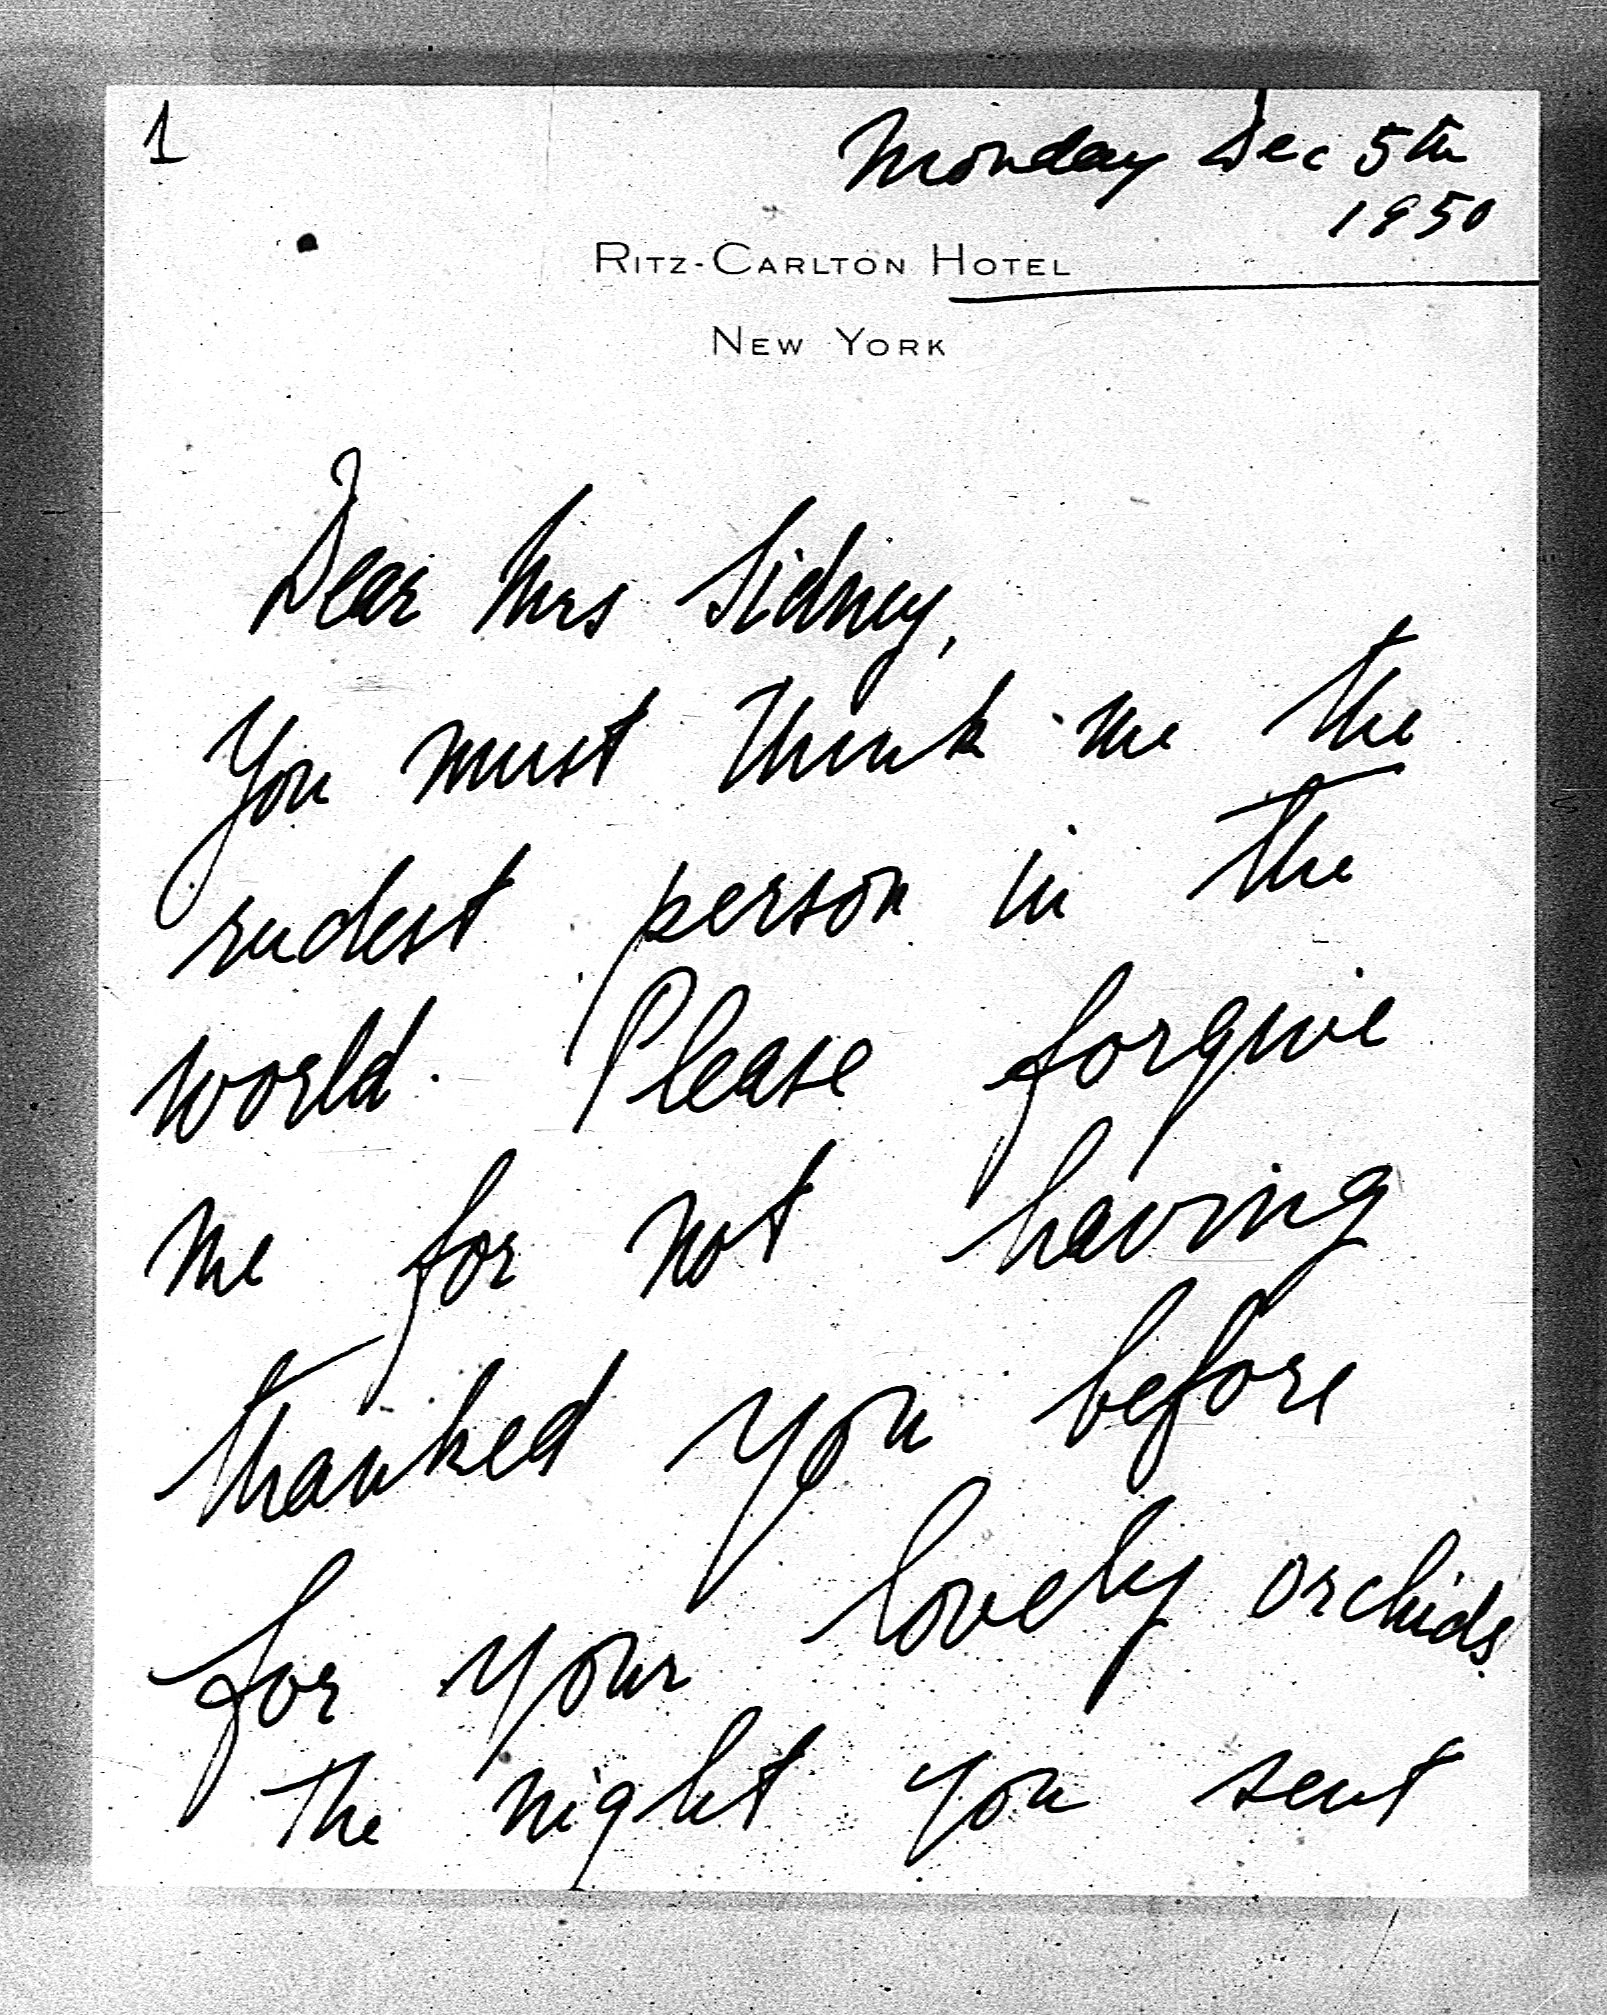 1
Monday Dec 5th
1950
RITZ-CARLTON HOTEL
NEW YORK
Dear Mrs Sidney,
You must think me the
rudest person in the
world. Please forgive
me for not having
thanked you before
for your lovely orchids.
The night you sent